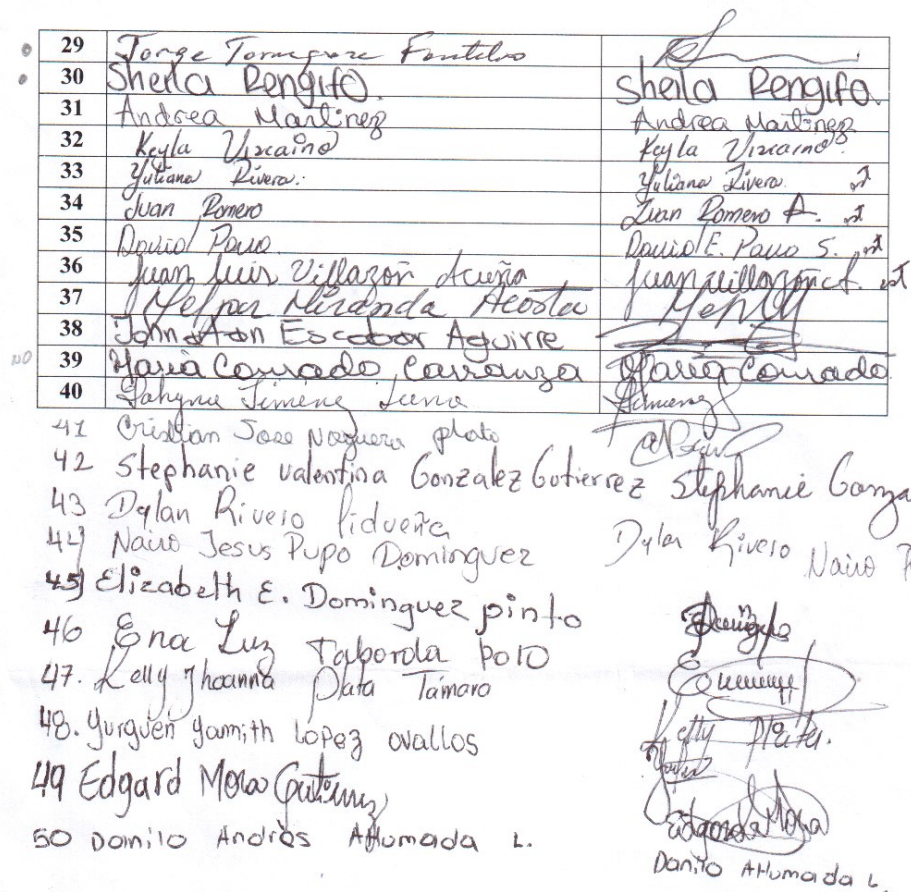 29 Jorge
30 Sheila Rengifo. Sheila Rengifo.
31 Andrea Martinez Andrea Martinez
32 Keyla Vizcaino Keyla Vizcaino.
33 Yuliana Rivera. Yuliana Rivera.
34 Juan Romero Juan Romero A.
35 David Pavo David E. Pavo S.
36 Juan Luis Villazón Acuña Juan villazón
37 Miranda Acosta
38 Escobar Aguirre
39 María Conrado Carranza María Conrado
NO
40 Jimenez Jimenez
41 Cristian Jose Noguera plata
42 Stephanie valentina Gonzalez Gutierrez Stephanie Gonza
43 Dylan Rivero Dylan Rivero
44) Nairo Jesus Pupo Dominguez Nairo P
45) Elizabeth E. Dominguez pinto
46 Ena Luz Taborda polo
47. Kelly Jhoanna Plata Támara Kelly Plata.
48. Yurguen Yamith Lopez ovallos
49 Edgard Mora Gutierrez Edgard Mora
50 Danilo Andrés Ahumada L. Danilo Ahumada L.